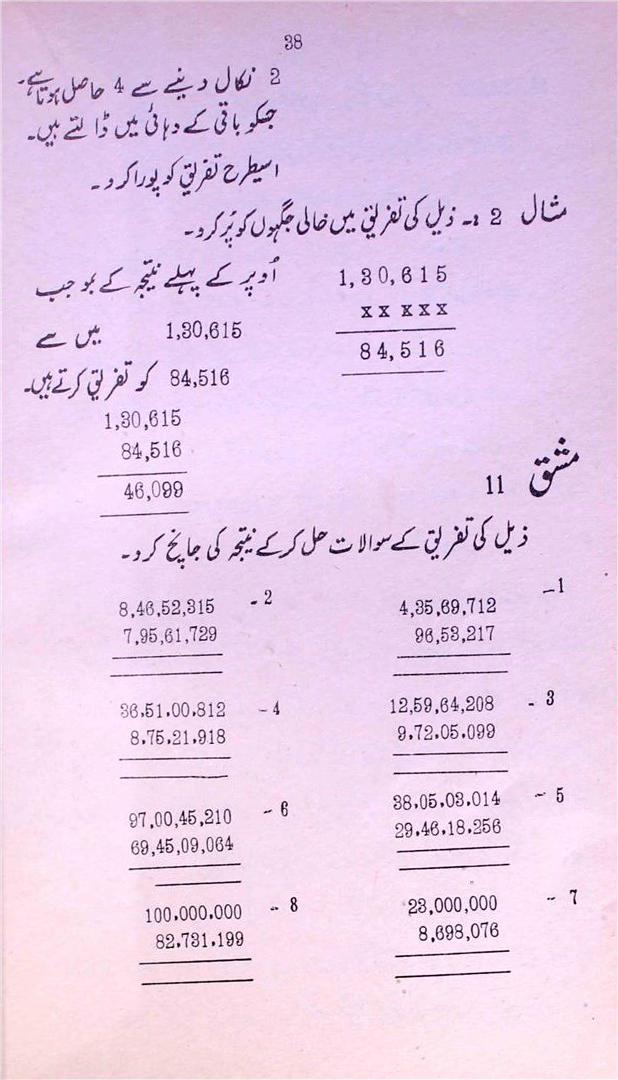 38
2 نکال دینے سے 4 حاصل ہوتا ہے۔
جسکو باقی کے دہائی میں ڈالتے ہیں۔
اسیطرح تفریق کو پورا کرو۔
مثال 2 :۔ ذیل کی تفریق میں خالی جگہوں کو پُر کرو۔
1,30,615
XX XXX
84,516
اُوپر کے پہلے نتیجہ کے بموجب
1,30,615 میں سے
84,516 کو تفریق کرتے ہیں۔
1,30,615
84,516
46,099
مشق 11
ذیل کی تفریق کے سوالات حل کرکے نتیجہ کی جانچ کرو۔
1-
4,35,69,712
96,53,217
2-
8,46,52,315
7,95,61,729
3-
12,59,64,208
9.72.05.099
4-
36.51.00.812
8.75.21.918
5-
38.05.03.014
29.46.18.256
6-
97,00,45,210
69,45,09,064
7-
23,000,000
8,698,076
8-
100.000.000
82.731.199